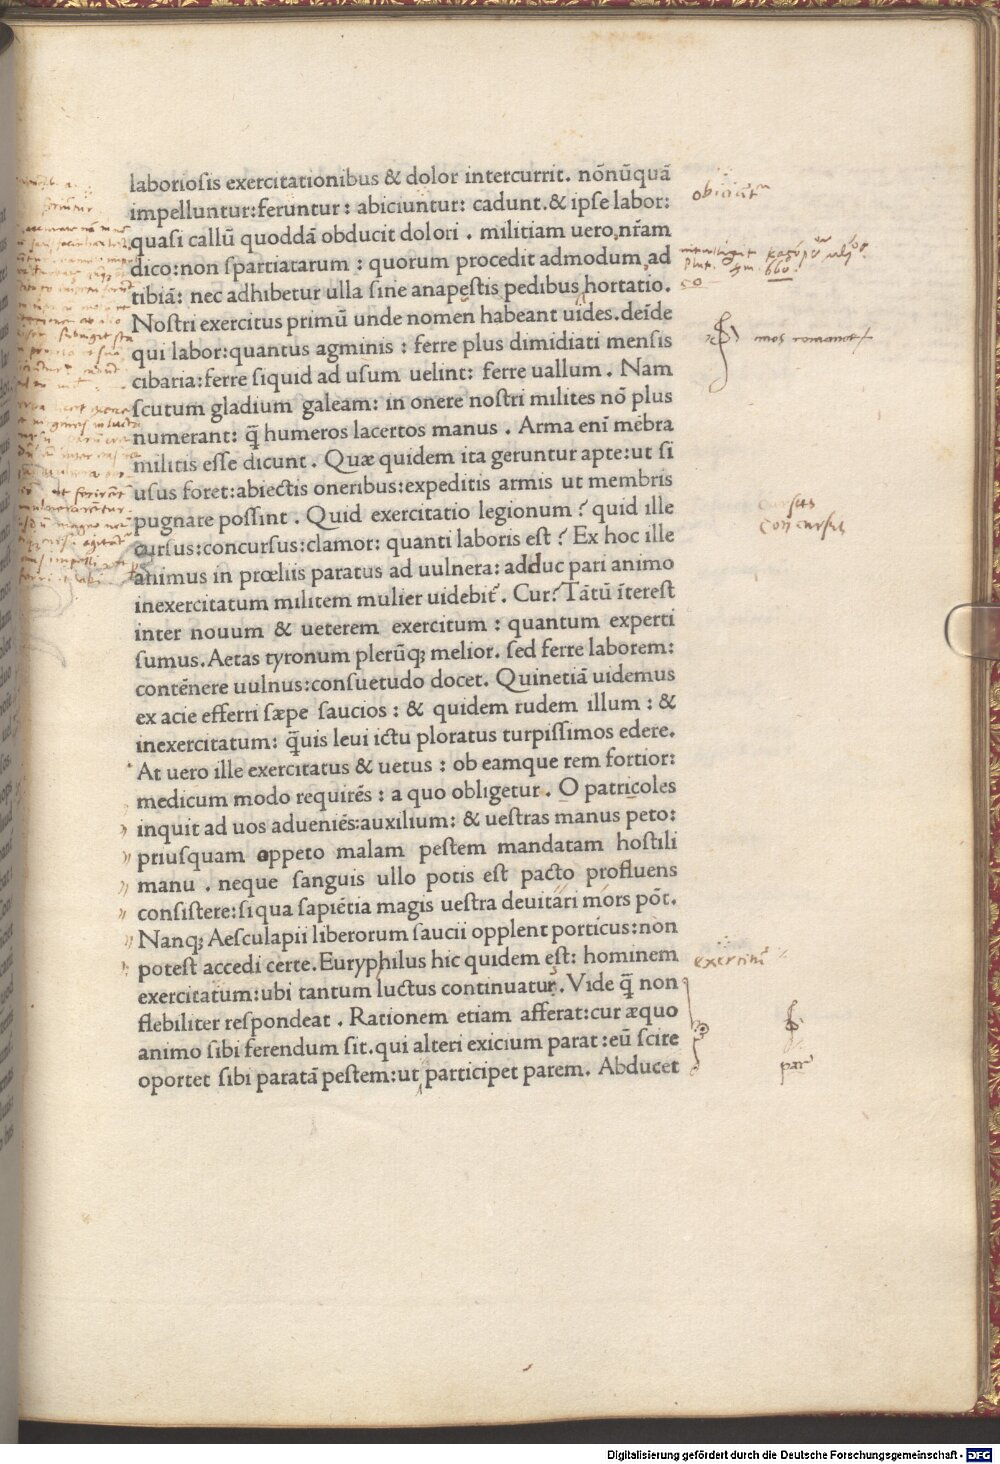 laboriosis exercitationibus & dolor intercurrit. nōnūquā
impelluntur:feruntur: abiciuntur: cadunt.& ipse labor:
quasi callū quoddā obducit dolori. militiam uero nr̄am
dico:non spartiatarum: quorum procedit admodum ad
tibiā: nec adhibetur ulla sine anapęstis pedibus hortatio.
Nostri exercitus primū unde nomen habeant uides.deīde
qui labor:quantus agminis: ferre plus dimidiati mensis
cibaria:ferre siquid ad usum uelint: ferre uallum. Nam
scutum gladium galeam: in onere nostri milites nō plus
numerant: q̄ humeros lacertos manus. Arma enī mēbra
militis esse dicunt. Quæ quidem ita geruntur apte:ut si
usus foret:abiectis oneribus:expeditis armis ut membris
pugnare possint. Quid exercitatio legionum? quid ille
cursus:concursus:clamor: quanti laboris est? Ex hoc ille
animus in prœliis paratus ad uulnera: adduc pari animo
inexercitatum militem mulier uidebit̄. Cur? Tātū īterest
inter nouum & ueterem exercitum: quantum experti
sumus.Aetas tyronum plerūq; melior. sed ferre laborem:
contēnere uulnus:consuetudo docet. Quinetiā uidemus
ex acie efferri sæpe saucios: & quidem rudem illum: &
inexercitatum: q̄uis leui ictu ploratus turpissimos edere.
At uero ille exercitatus & uetus: ob eamque rem fortior:
medicum modo requirēs: a quo obligetur. O patricoles
inquit ad uos adueniēs:auxilium: & uestras manus peto:
priusquam oppeto malam pestem mandatam hostili
manu. neque sanguis ullo potis est pacto profluens
consistere:si qua sapiētia magis uestra deuitari mors pōt.
Nanq; Aesculapii liberorum saucii opplent porticus:non
potest accedi certe.Euryphilus hic quidem est: hominem
exercitatum:ubi tantum luctus continuatur. Vide q̄ non
flebiliter respondeat. Rationem etiam afferat:cur æquo
animo sibi ferendum sit.qui alteri exicium parat:eū scire
oportet sibi paratā pestem:ut participet parem. Abducet
cursus
concursus
par
Digitalisierung gefördert durch die Deutsche Forschungsgemeinschaft - DFG